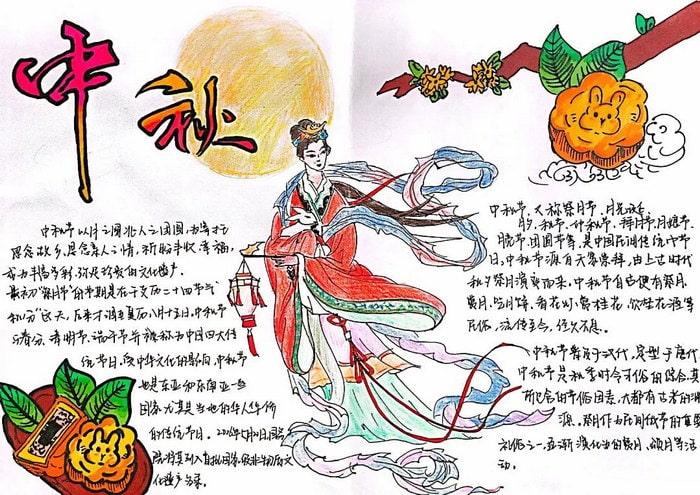 中秋
中秋节以月之圆兆人之团圆,为寄托
思念故乡,思念亲人之情,祈盼丰收、幸福,
成为丰富多彩、弥足珍贵的文化遗产。
最初“祭月节”的节期是在干支历二十四节气
“秋分”这天,后来才调至夏历八月十五日,中秋节
与春分、清明节、端午节并称为中国四大传
统节日。受中华文化的影响,中秋节
也是东亚和东南亚一些
国家尤其是当地的华人华侨
的传统节日。2006年5月20日国务
院将其列入首批国家级非物质文
化遗产名录。
中秋节,又称祭月节、月光诞、
月夕、秋节、仲秋节、拜月节、月娘节、
月亮节、团圆节等,是中国民间传统节
日。中秋节源自天象崇拜,由上古时代
秋夕祭月演变而来。中秋节自古便有祭月、
赏月、吃月饼、看花灯、赏桂花、饮桂花酒等
民俗,流传至今,经久不息。
中秋节普及于汉代,定型于唐代
中秋节是秋季时令习俗的综合,其
所包含的节俗因素,大都有古老的渊
源。祭月作为民间过节的重要
礼俗之一,逐渐演化为赏月、颂月等活
动。